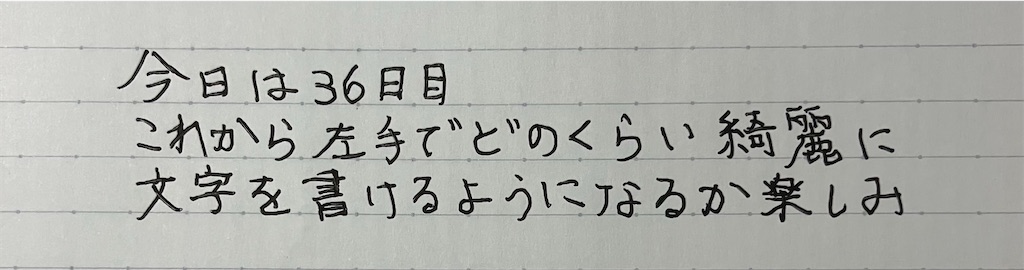 今日は36日目
これから左手でどのくらい綺麗に
文字を書けるようになるか楽しみ